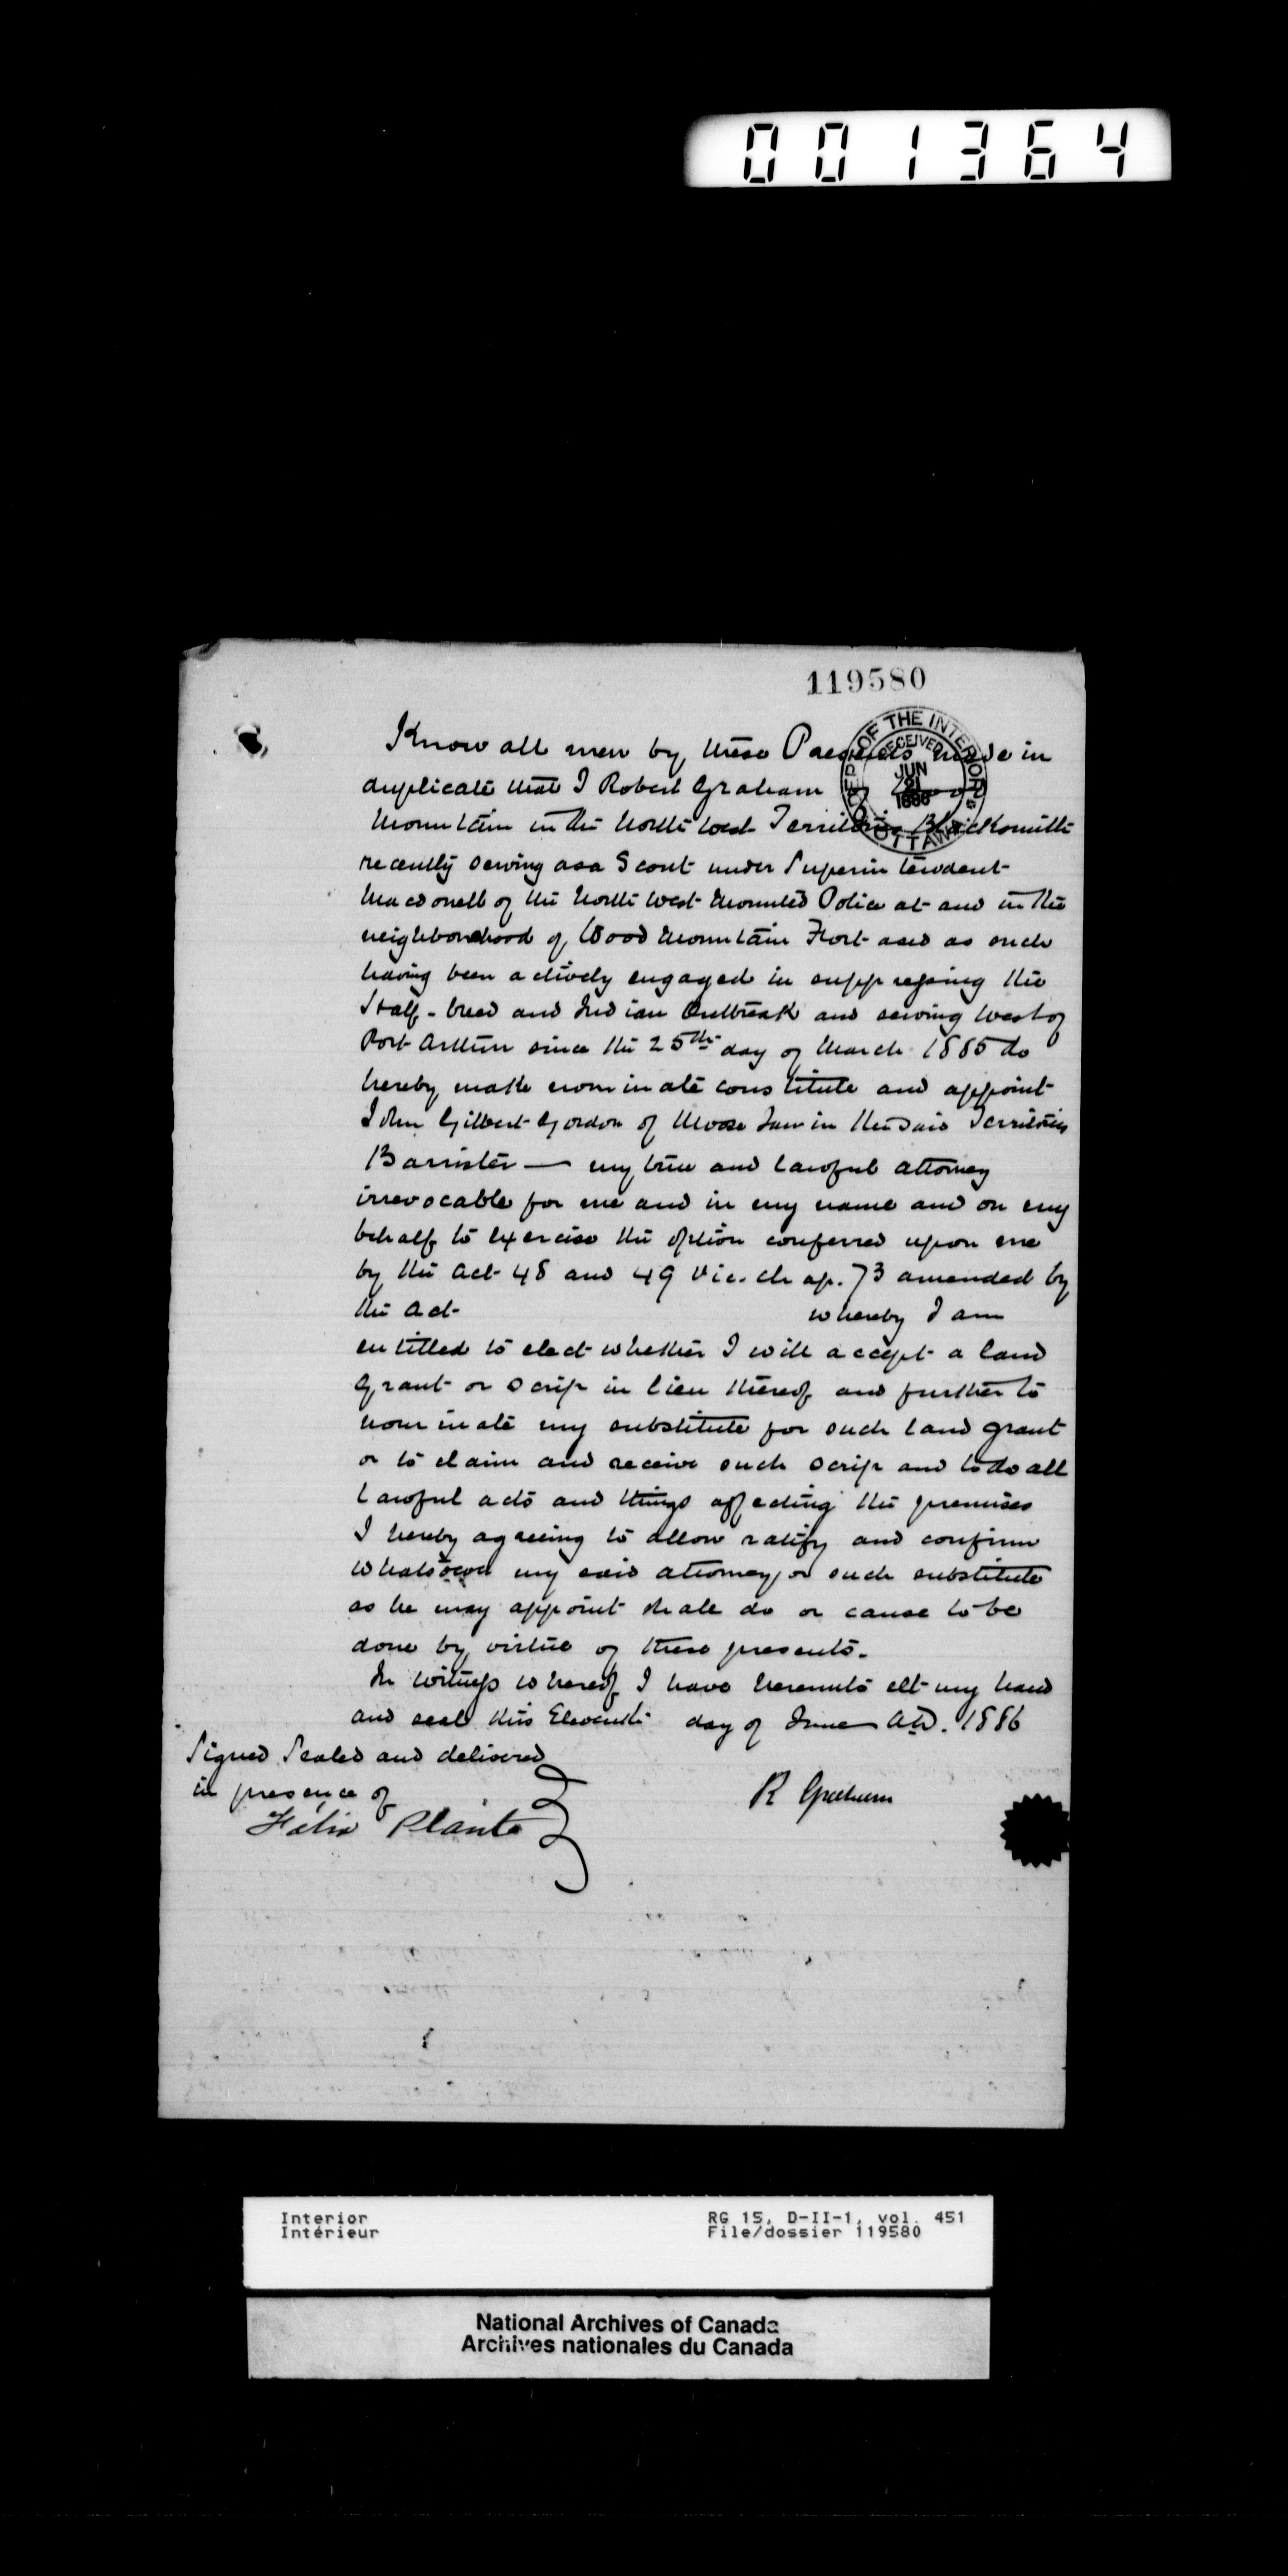 001364
119580
DEP. OF THE INTERIOR
RECEIVED
JUN
21
1886
OTTAWA
Know all men by these Presents made in
duplicate that I Robert Graham of Wood
Mountain in the North West Territories Blacksmith
recently serving as a Scout under Superintendent
Macdonell of the North West Mounted Police at and in the
neighborhood of Wood Mountain Fort and as such
having been actively engaged in suppressing the
Half-breed and Indian Outbreak and serving West of
Port Arthur since the 25th day of March 1885 do
hereby make nominate constitute and appoint
John Gilbert Gordon of Moose Jaw in the said Territories
Barrister — my true and lawful attorney
irrevocable for me and in my name and on my
behalf to exercise the option conferred upon me
by the Act 48 and 49 Vic. chap. 73 amended by
the Act whereby I am
entitled to elect whether I will accept a land
grant or scrip in lieu thereof and further to
nominate my substitute for such land grant
or to claim and receive such scrip and to do all
lawful acts and things affecting the premises
I hereby agreeing to allow ratify and confirm
whatsoever my said attorney or such substitute
as he may appoint shall do or cause to be
done by virtue of these presents.
In witness whereof I have hereunto set my hand
and seal this Eleventh day of June A.D. 1886
Signed Sealed and delivered
in presence of
Felix Plante
R Graham
Interior
Intérieur
RG 15, D-II-1, vol. 451
File/dossier 119580
National Archives of Canada
Archives nationales du Canada